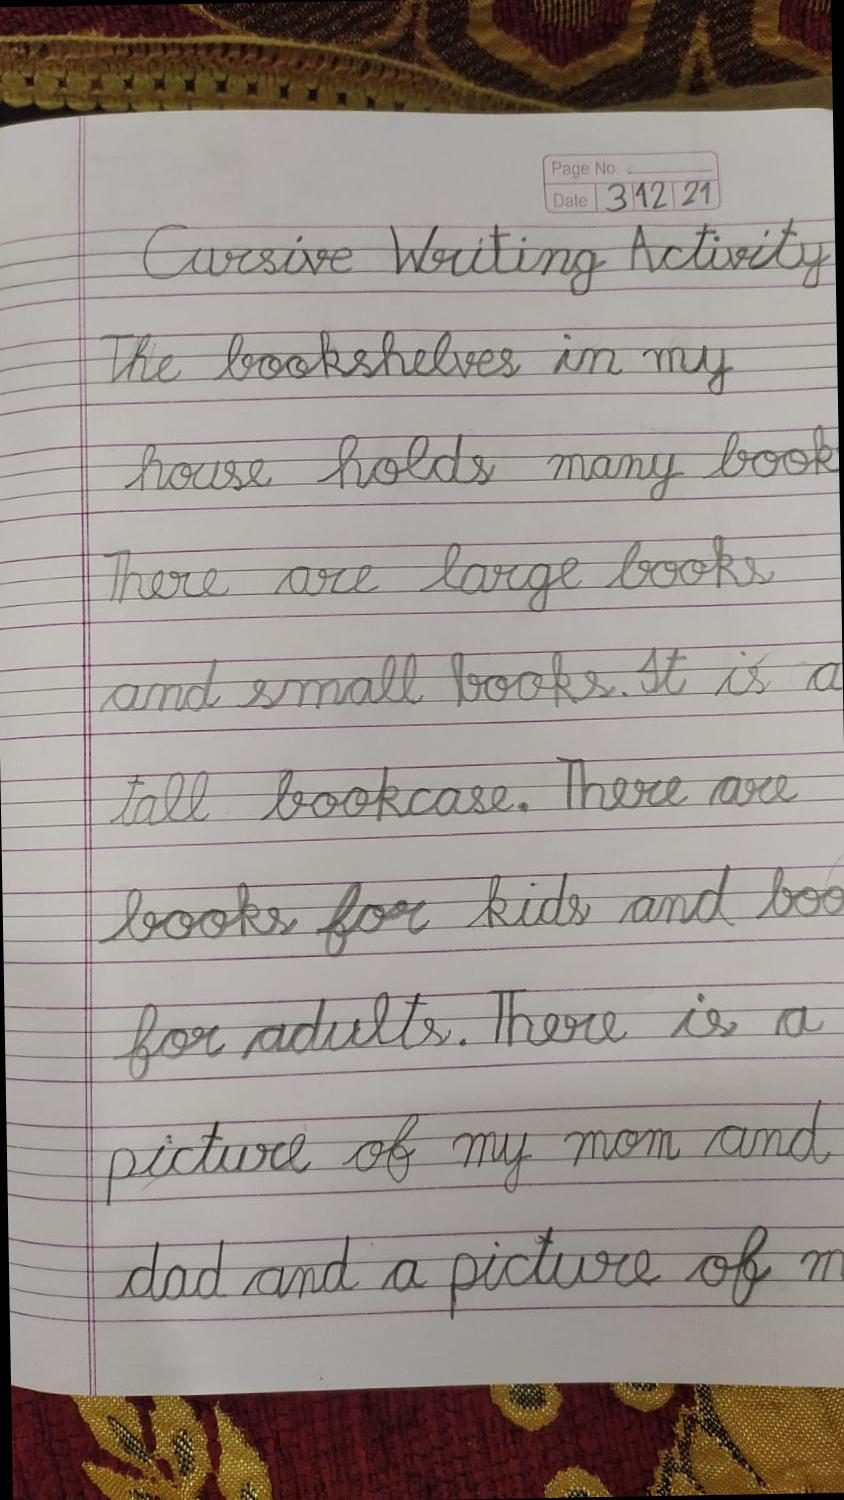 Page No.
Date 3 12 21
Cursive Writing Activity
The bookshelves in my
house holds many book
There are large books
and small books. It is a
tall bookcase. There are
books for kids and boo
for adults. There is a
picture of my mom and
dad and a picture of m